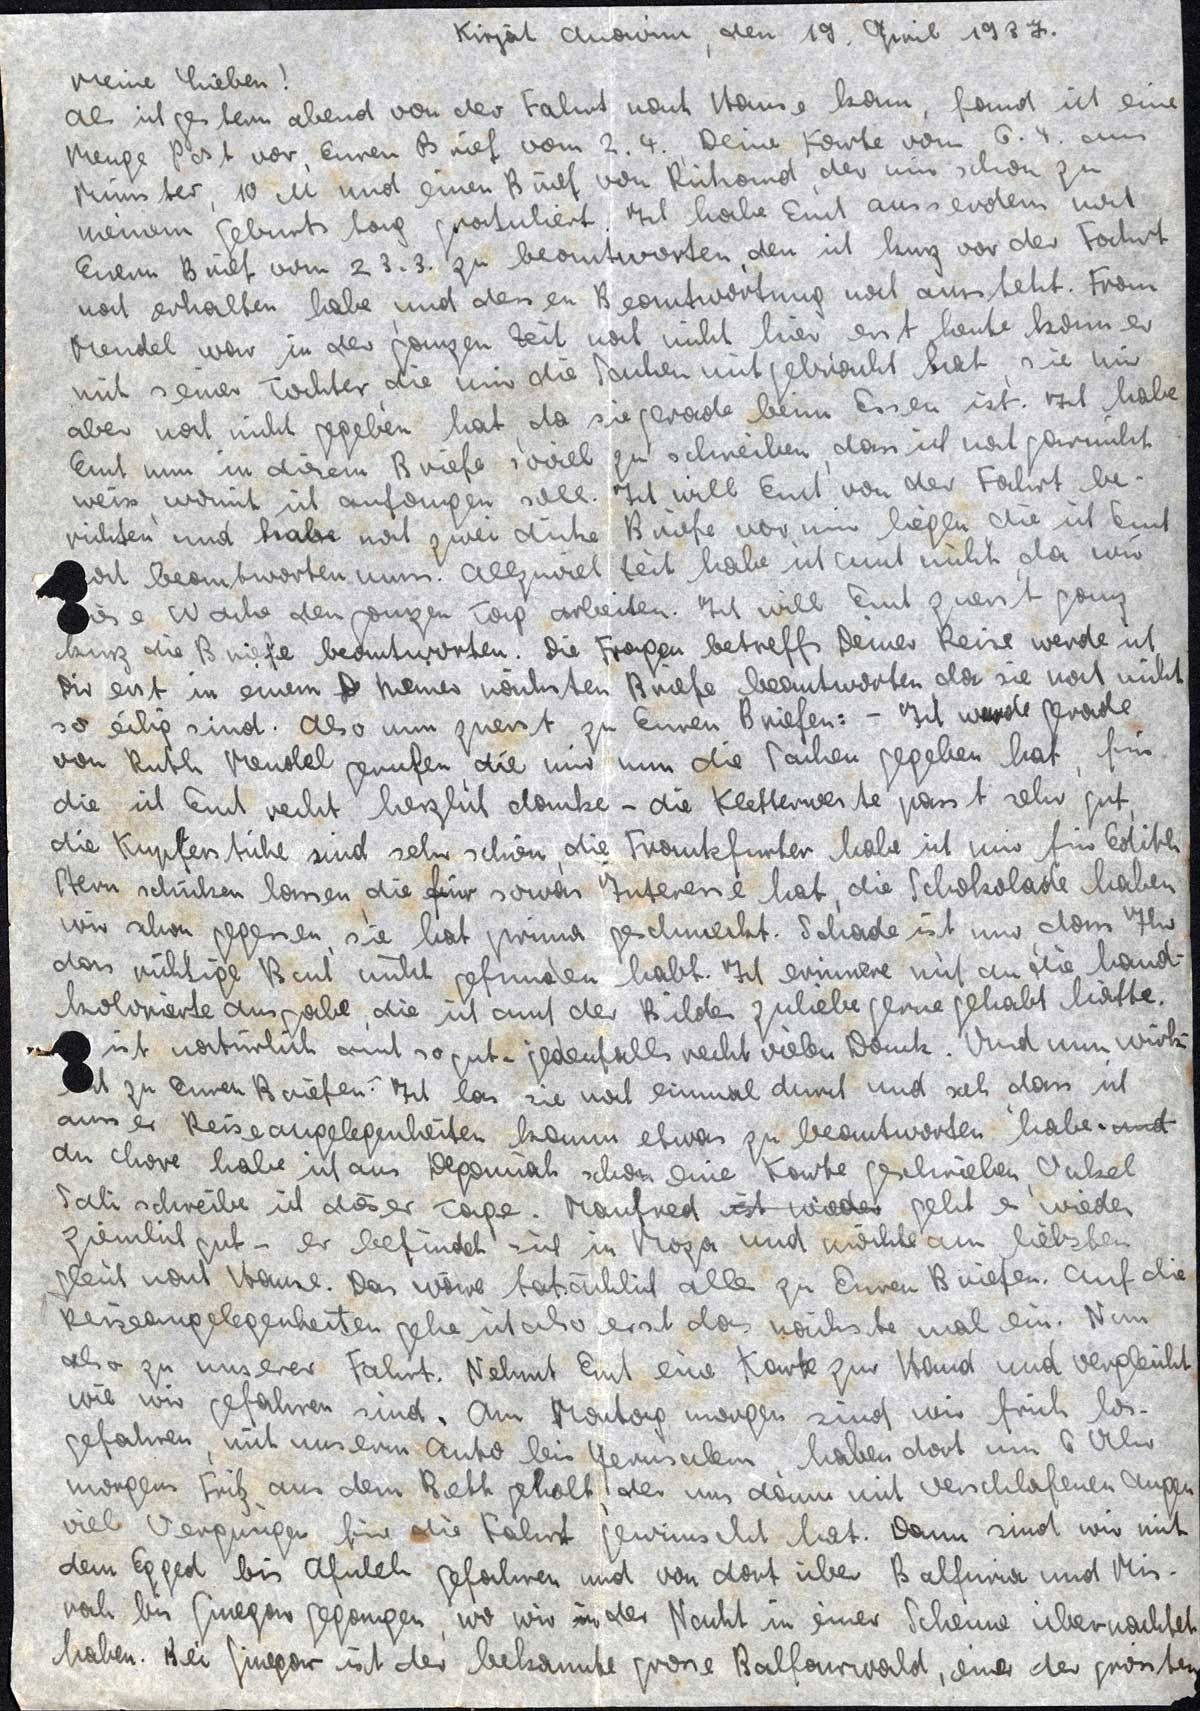 Kirjat Anawim, den 19. April 1937.
Meine Lieben!
Als ich gestern abend von der Fahrt nach Hause kam, fand ich eine
Menge Post vor, Euren Brief vom 2.4., Deine Karte vom 6.4. aus
Münster, 10 M und einen Brief von Richard, der mir schon zu
meinem Geburtstag gratuliert. Ich habe Euch ausserdem noch
Euern Brief vom 23.3. zu beantworten, den ich kurz vor der Fahrt
noch erhalten habe und dessen Beantwortung noch aussteht. Fram
Mendel war in der ganzen Zeit noch nicht hier, erst heute kam er
mit seiner Tochter, die mir die Sachen mitgebracht hat, sie mir
aber noch nicht gegeben hat, da sie gerade beim Essen ist. Ich habe
Euch nun in diesem Briefe soviel zu schreiben, dass ich noch garnicht
weiss, womit ich anfangen soll. Ich will Euch von der Fahrt be-
richten und habe noch zwei dicke Briefe vor mir liegen, die ich Euch
noch beantworten muss. Allzuviel Zeit habe ich auch nicht, da wir
diese Woche den ganzen Tag arbeiten. Ich will Euch zuerst ganz
kurz die Briefe beantworten. Die Fragen betreffs Deiner Reise werde ich
Dir erst in einem meiner nächsten Briefe beantworten, da sie noch nicht
so eilig sind. Also nun zuerst zu Euren Briefen: – Ich werde gerade
von Ruth Mendel gerufen, die mir nun die Sachen gegeben hat, für
die ich Euch recht herzlich danke – die Kletterweste passt sehr gut,
die Kupferstiche sind sehr schön, die Frankfurter habe ich mir für Edith
Stern schicken lassen, die für sowas Interesse hat, die Schokolade haben
wir schon gegessen, sie hat prima geschmeckt. Schade ist nur, dass Ihr
das richtige Buch nicht gefunden habt. Ich erinnere mich an die hand-
kolorierte Ausgabe, die ich auch der Bilder zuliebe gerne gehabt hätte.
ist natürlich auch so gut – jedenfalls recht vielen Dank. Und nun wirk-
lich zu Euren Briefen: Ich las sie noch einmal durch und seh, dass ich
ausser Reiseangelegenheiten kaum etwas zu beantworten habe. und
An Chore habe ich aus Deganiah schon eine Karte geschrieben, Onkel
Sali schreibe ich dieser Tage. Manfred ist wieder geht es wieder
ziemlich gut – er befindet sich in Moza und möchte am liebsten
gleich nach Hause. Das wäre tatsächlich alles zu Euren Briefen. Auf die
Reiseangelegenheiten gehe ich also erst das nächste mal ein. Nun
also zu unserer Fahrt. Nehmt Euch eine Karte zur Hand und vergleicht
wie wir gefahren sind. Am Montag morgen sind wir früh los-
gefahren, mit unserm Auto bis Jerusalem, haben dort um 6 Uhr
morgens Fritz aus dem Bett geholt, der uns dann mit verschlafenen Augen
viel Vergnügen für die Fahrt gewünscht hat. Dann sind wir mit
dem Egged bis Afuleh gefahren und von dort über Balfuria und Mis-
rach bis Ginegar gegangen, wo wir in der Nacht in einer Scheune übernachtet
haben. Bei Ginegar ist der bekannte grosse Balfourwald, einer der grössten